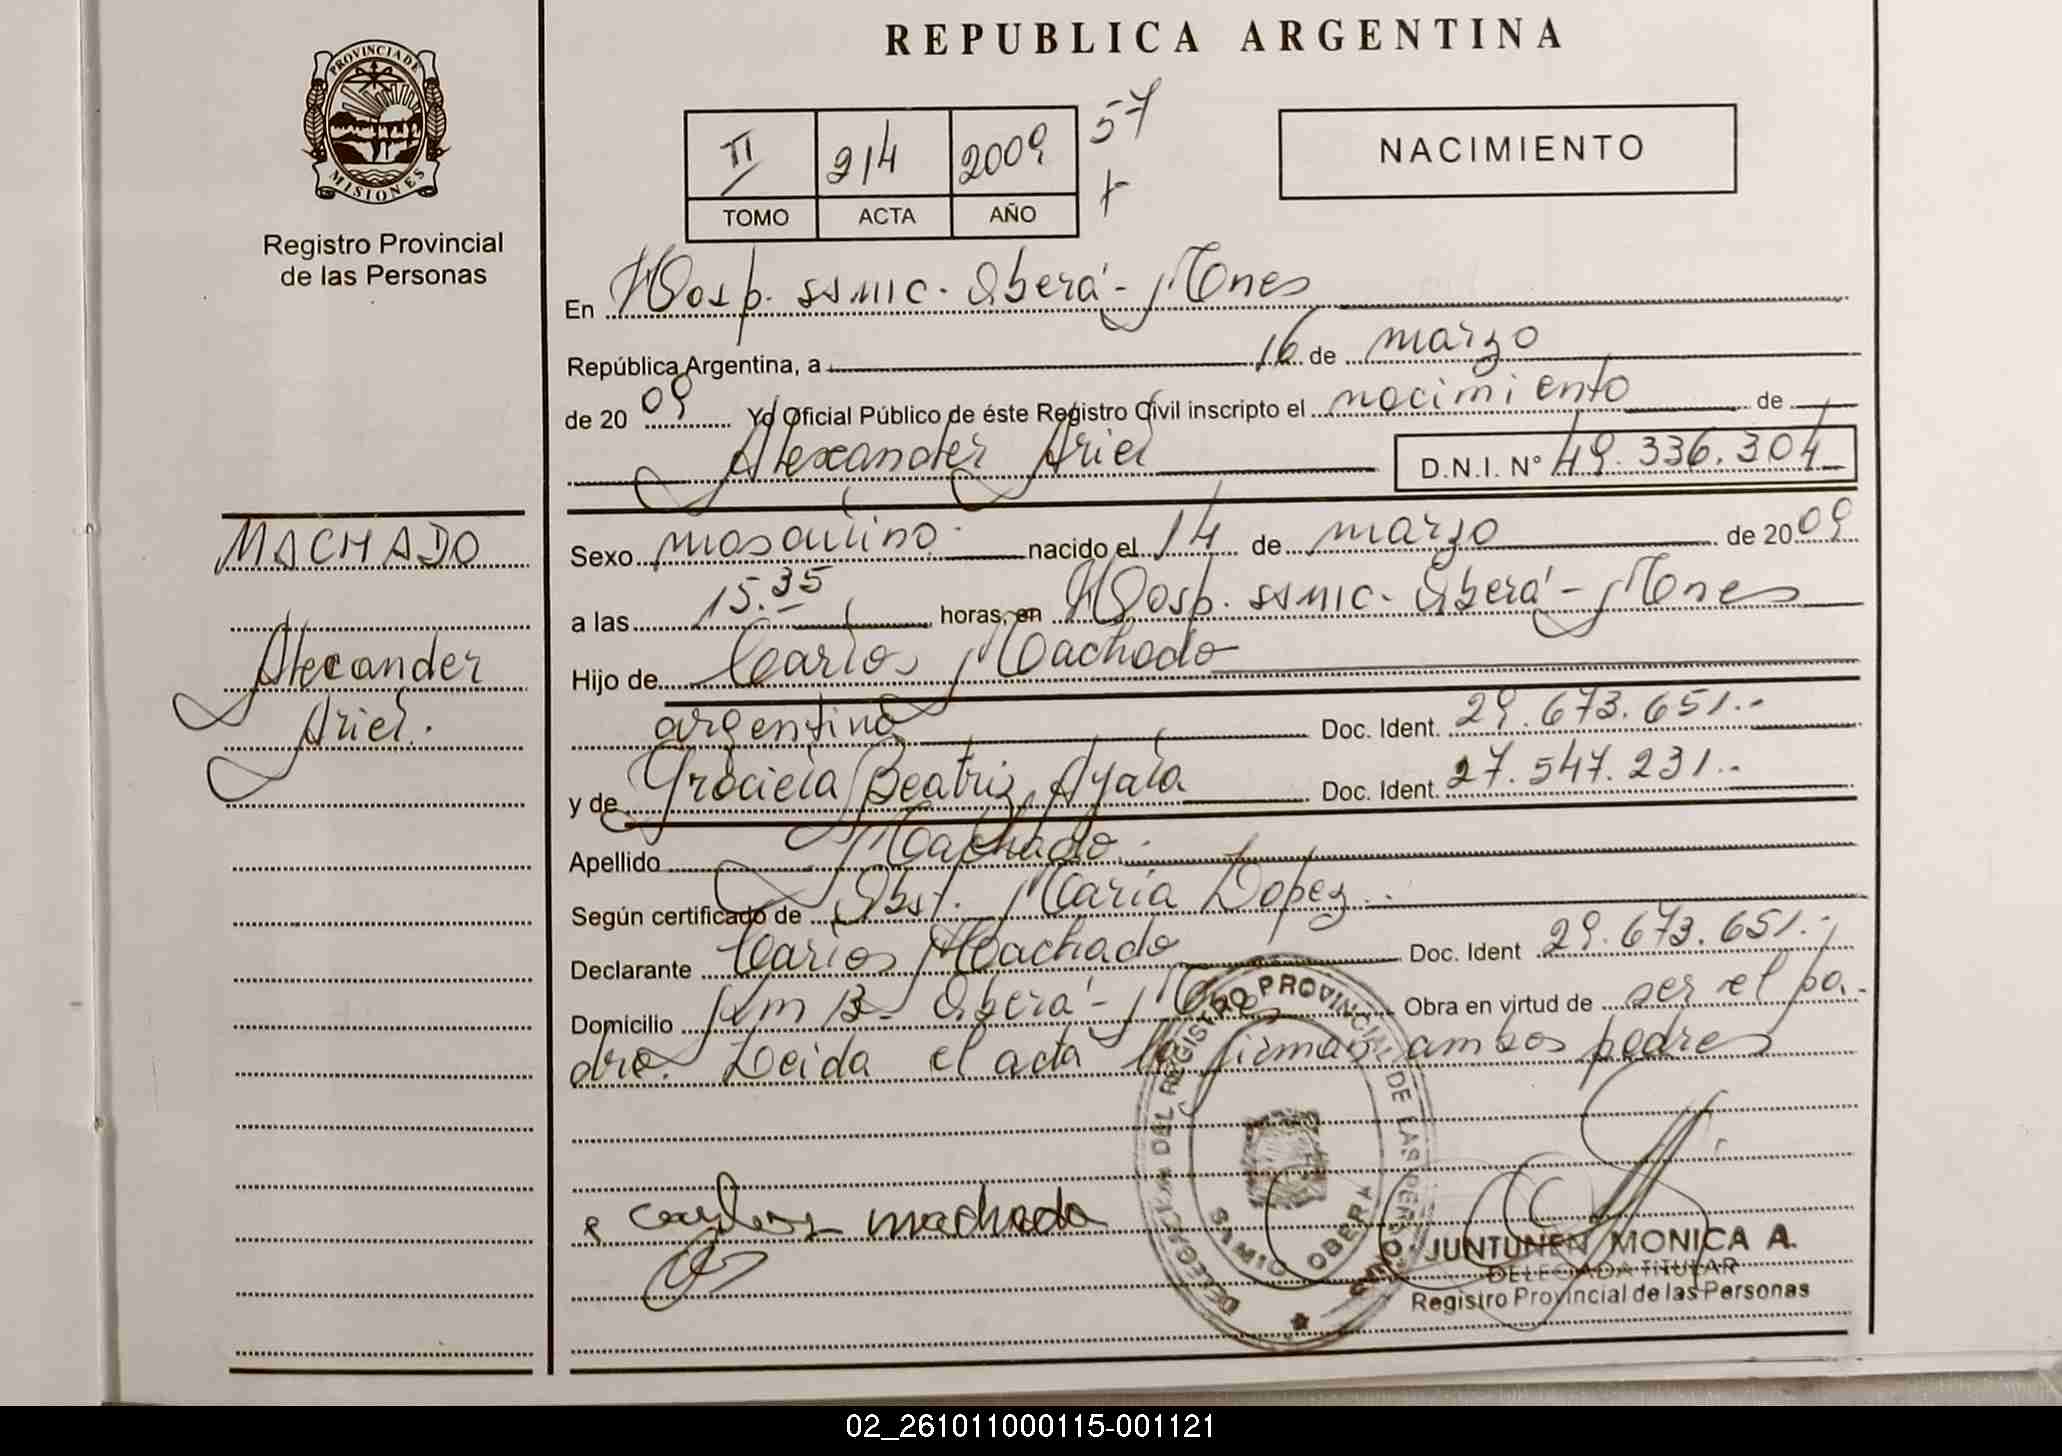 REPUBLICA ARGENTINA
PROVINCIA DE
MISIONES
Registro Provincial
de las Personas
II 214 2009 57
TOMO ACTA AÑO
NACIMIENTO
En Hosp. SAMIC. Oberá - Mnes
República Argentina, a 16 de marzo
de 2009 Yo Oficial Público de éste Registro Civil inscripto el nacimiento de
Alexander Ariel D.N.I. N° 49.336.304
MACHADO
Alexander
Ariel.
Sexo masculino. nacido el 14 de marzo de 2009
a las 15.35 horas, en Hosp. SAMIC. Oberá - Mnes
Hijo de Carlos Machado
argentino Doc. Ident. 29.673.651.-
y de Graciela Beatriz Ayala Doc. Ident. 27.547.231.-
Apellido Machado.
Según certificado de Obst. Maria Lopez.
Declarante Carlos Machado Doc. Ident 29.673.651.-
Domicilio Km 13 - Oberá - Mnes Obra en virtud de ser el pa-
dre. Leida el acta la firman ambos padres
carlos machado
DELEGACION DEL REGISTRO PROVINCIAL DE LAS PERSONAS
SAMIC OBERA
JUNTUNEN MONICA A.
DELEGADA TITULAR
Registro Provincial de las Personas
02_261011000115-001121